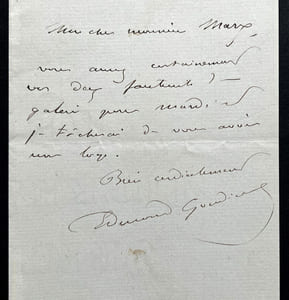 Mon cher monsieur Marx,
vous aurez certainement
vos deux fauteuils de
galerie pour mardi, et
je tâcherai de vous avoir
une loge.
Bien cordialement
Edmond Gondinet